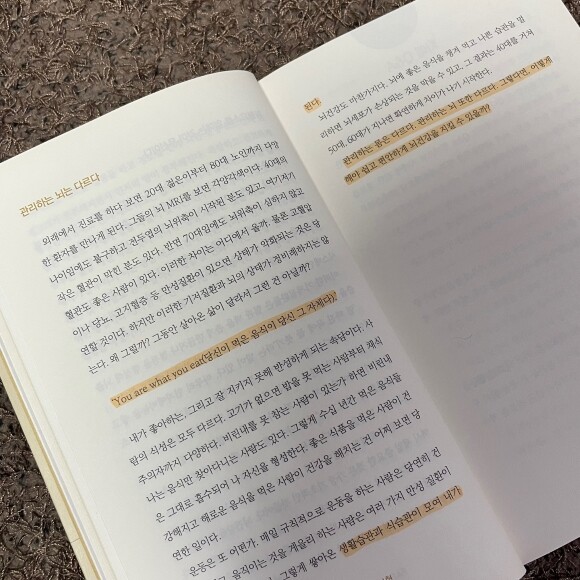 관리하는 뇌는 다르다
외래에서 진료를 하다 보면 20대 젊은이부터 80대 노인까지 다양
한 환자를 만나게 된다. 그들의 뇌 MRI를 보면 각양각색이다. 40대의
나이임에도 불구하고 전두엽의 뇌위축이 시작된 분도 있고, 여기저기
작은 혈관이 막힌 분도 있다. 반면 70대임에도 뇌위축이 심하지 않고
혈관도 좋은 사람이 있다. 이러한 차이는 어디에서 올까. 물론 고혈압
이나 당뇨, 고지혈증 등 만성질환이 있으면 상태가 악화되는 것은 당
연할 것이다. 하지만 이러한 기저질환과 뇌의 상태가 정비례하지는 않
는다. 왜 그럴까? 그동안 살아온 삶이 달라서 그런 건 아닐까?
'You are what you eat(당신이 먹은 음식이 당신 그 자체다).'
내가 좋아하는, 그리고 잘 지키지 못해 반성하게 되는 속담이다. 사
람의 식성은 모두 다르다. 고기가 없으면 밥을 못 먹는 사람부터 채식
주의자까지 다양하다. 비린내를 못 참는 사람이 있는가 하면 비린내
나는 음식만 찾아다니는 사람도 있다. 그렇게 수십 년간 먹은 음식들
은 그대로 흡수되어 나 자신을 형성한다. 좋은 식품을 먹은 사람이 건
강해지고 해로운 음식을 먹은 사람이 건강을 해치는 건 어찌 보면 당
연한 일이다.
운동은 또 어떤가. 매일 규칙적으로 운동을 하는 사람은 당연히 건
고 움직이는 것을 게을리 하는 사람은 여러 가지 만성 질환이
그렇게 쌓아온 생활습관과 식습관이 모여 내가
된다.
뇌건강도 마찬가지다. 뇌에 좋은 음식을 챙겨 먹고 나쁜 습관을 멀
리하면 뇌세포가 손상되는 것을 막을 수 있고, 그 결과는 40대를 거쳐
50대, 60대가 지나면 확연하게 차이가 나기 시작한다.
관리하는 몸은 다르다. 관리하는 뇌 또한 다르다. 그렇다면, 어떻게
해야 쉽고 편안하게 뇌건강을 지킬 수 있을까?